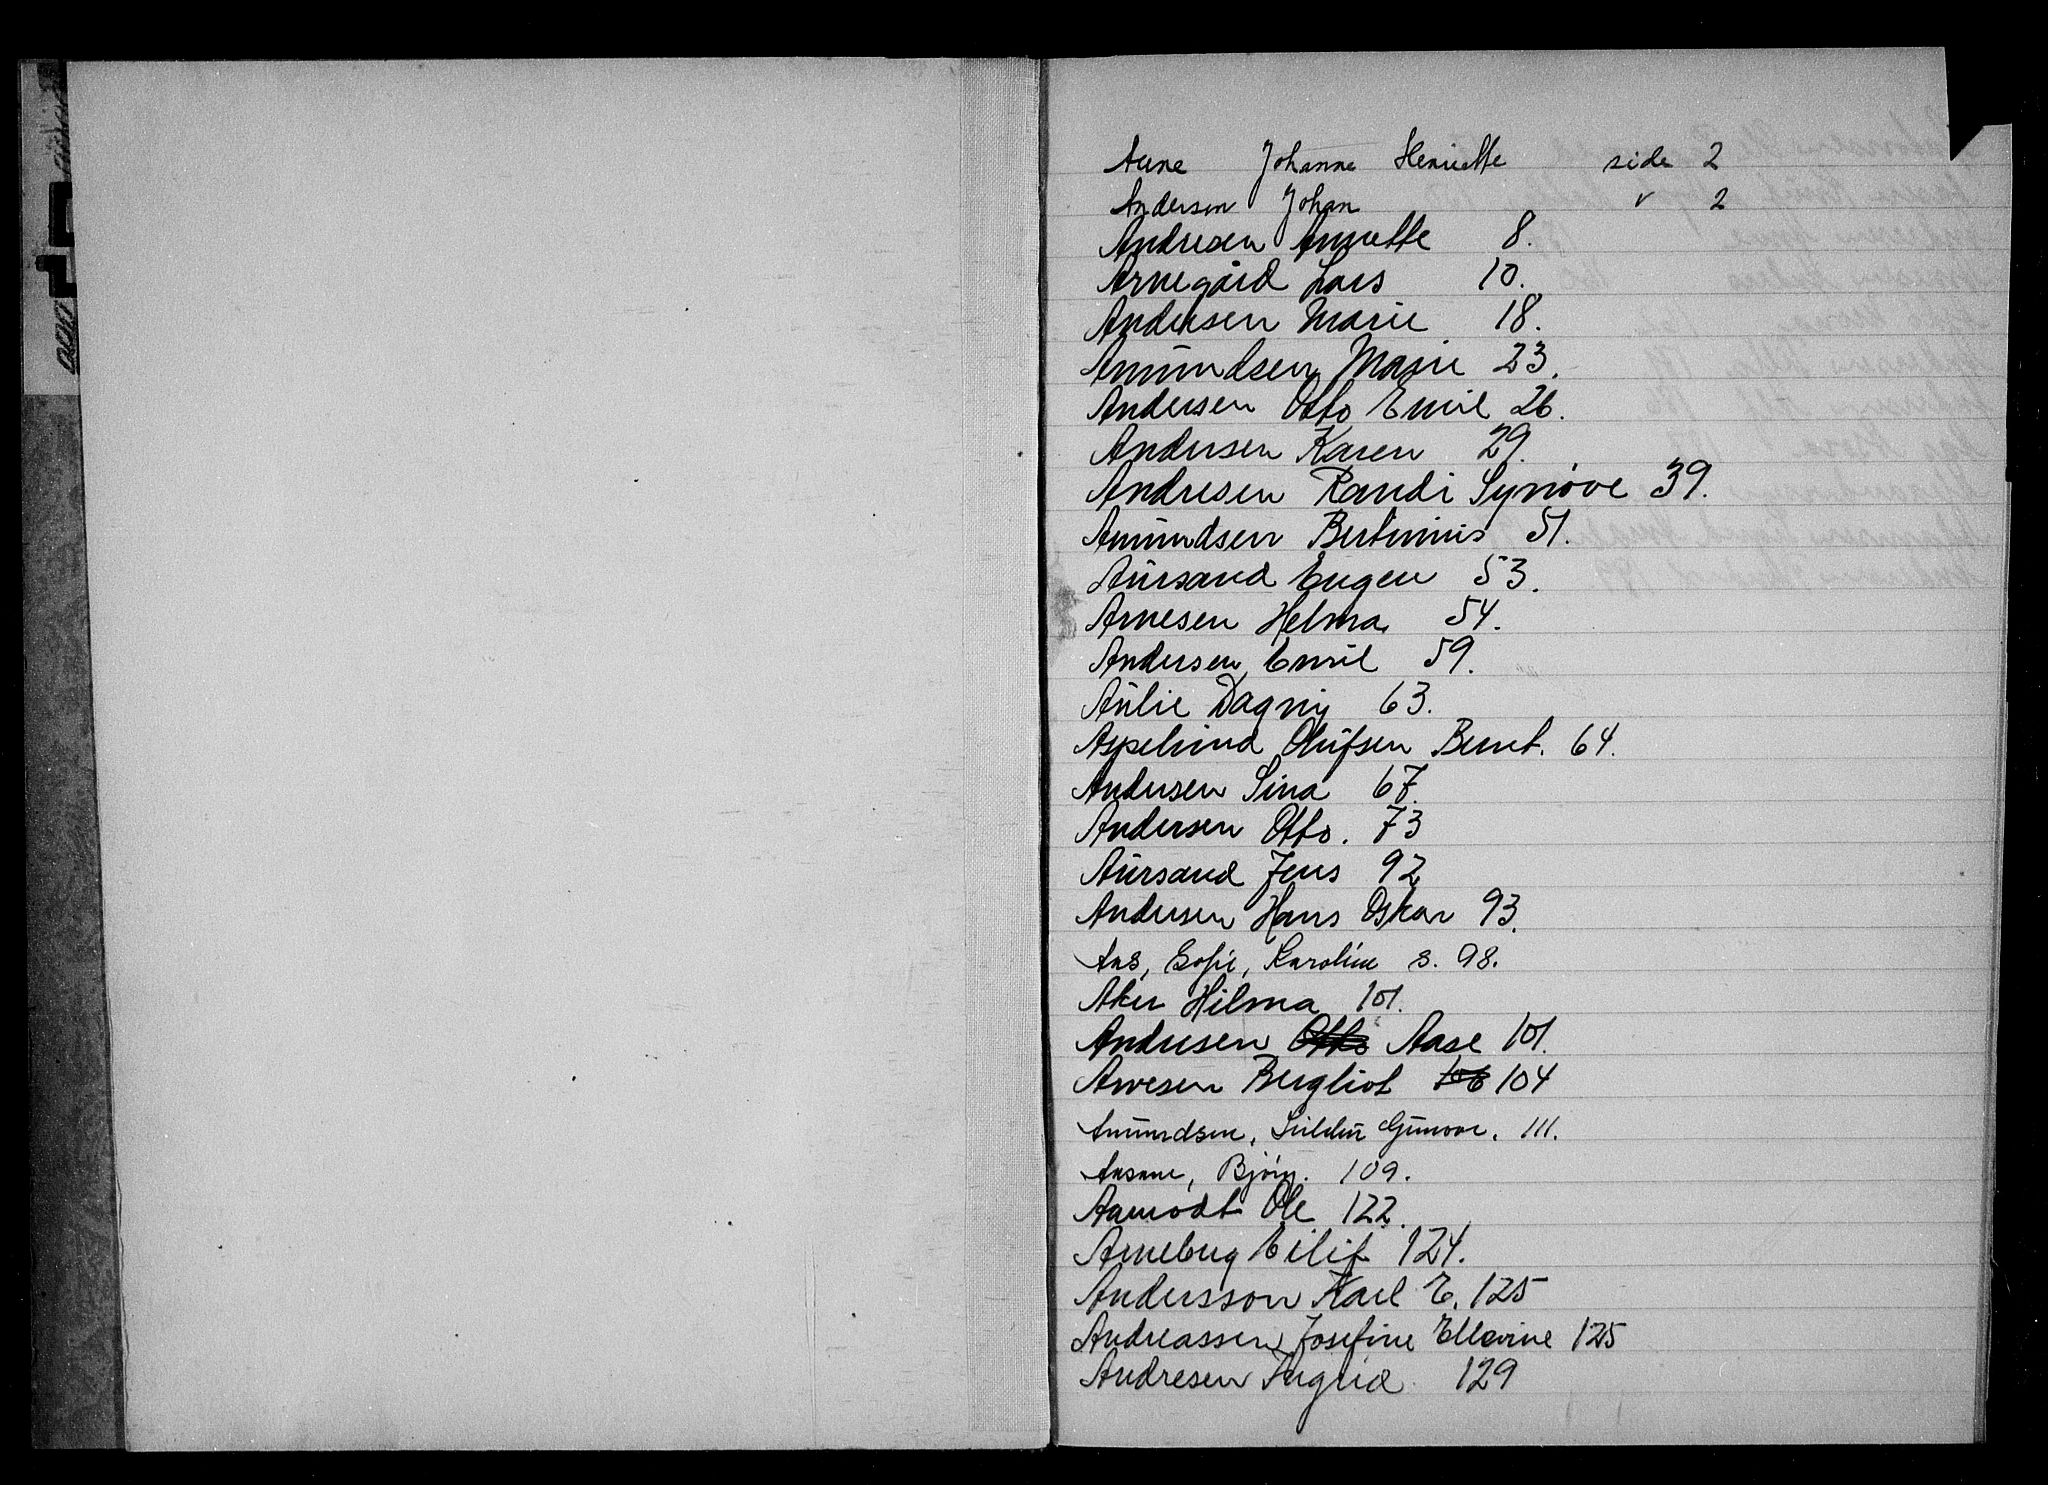 Aune Johanne Henriette side 2
Anderson Johan v 2
Andresen Annette 8.
Arnegård Lars 10.
Andersen Marie 18.
Amundsen Marie 23.
Andersen Otto Emil 26.
Andersen Karen 29.
Andresen Randi Synöve 39.
Amundsen Bertinius 51.
Aursand Eugen 53.
Arnesen Helma 54.
Andersen Emil 59.
Aulie Dagny 63.
Aspelund Olufsen Bernt. 64.
Andersen Sina 67.
Andersen Otto. 73
Aursand Jens 92
Andersen Hans Oskar 93.
Aas, Sofie, Karoline s. 98.
Aker Hilma 101.
Andresen Otto Aase 101.
Arnesen Bergliot 106 104
Amundsen, Gunvor. 111.
Aasane, Bjørg. 109.
Aamodt Ole 122.
Arneberg Eilif 124.
Andersson Karl E. 125
Andreassen Josefine Ellevine 125
Andresen Ingrid 129